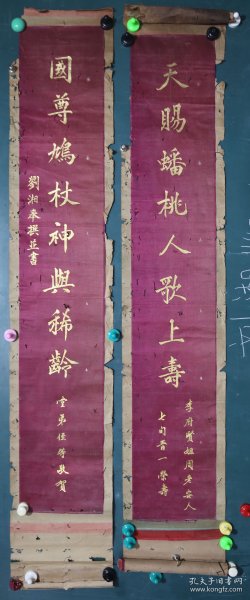 天賜蟠桃人歌上壽
李府賢姐周老安人
七旬晉一榮壽
國尊鳩杖神與稀齡
劉湘承撰並書
堂弟任等敬賀
孔夫子旧书网